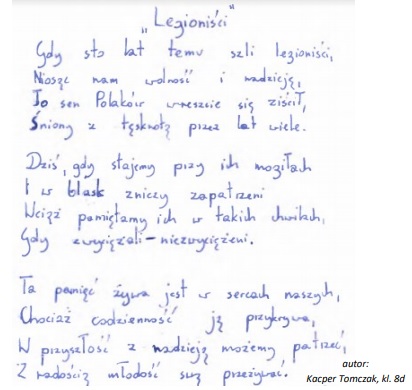 „Legioniści"
Gdy sto lat temu szli legioniści,
Niosąc nam wolność i nadzieję,
To sen Polaków wreszcie się ziścił,
Śniony z tęsknotą przez lat wiele.
Dziś, gdy stajemy przy ich mogiłach
I w blask zniczy zapatrzeni
Wciąż pamiętamy ich w takich chwilach,
Gdy zwyciężali – niezwyciężeni.
Ta pamięć żywa jest w sercach naszych,
Chociaż codzienność ją przykrywa,
W przyszłość z nadzieją możemy patrzeć,
Z radością młodość swą przeżywać.
autor:
Kacper Tomczak, kl. 8d